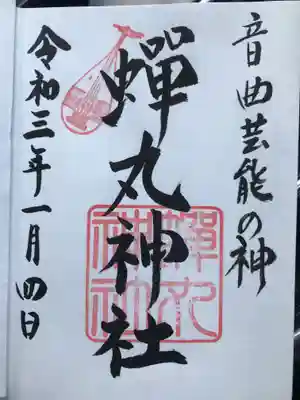 音曲芸能の神
蟬丸神社
蟬丸
神社
令和三年一月四日